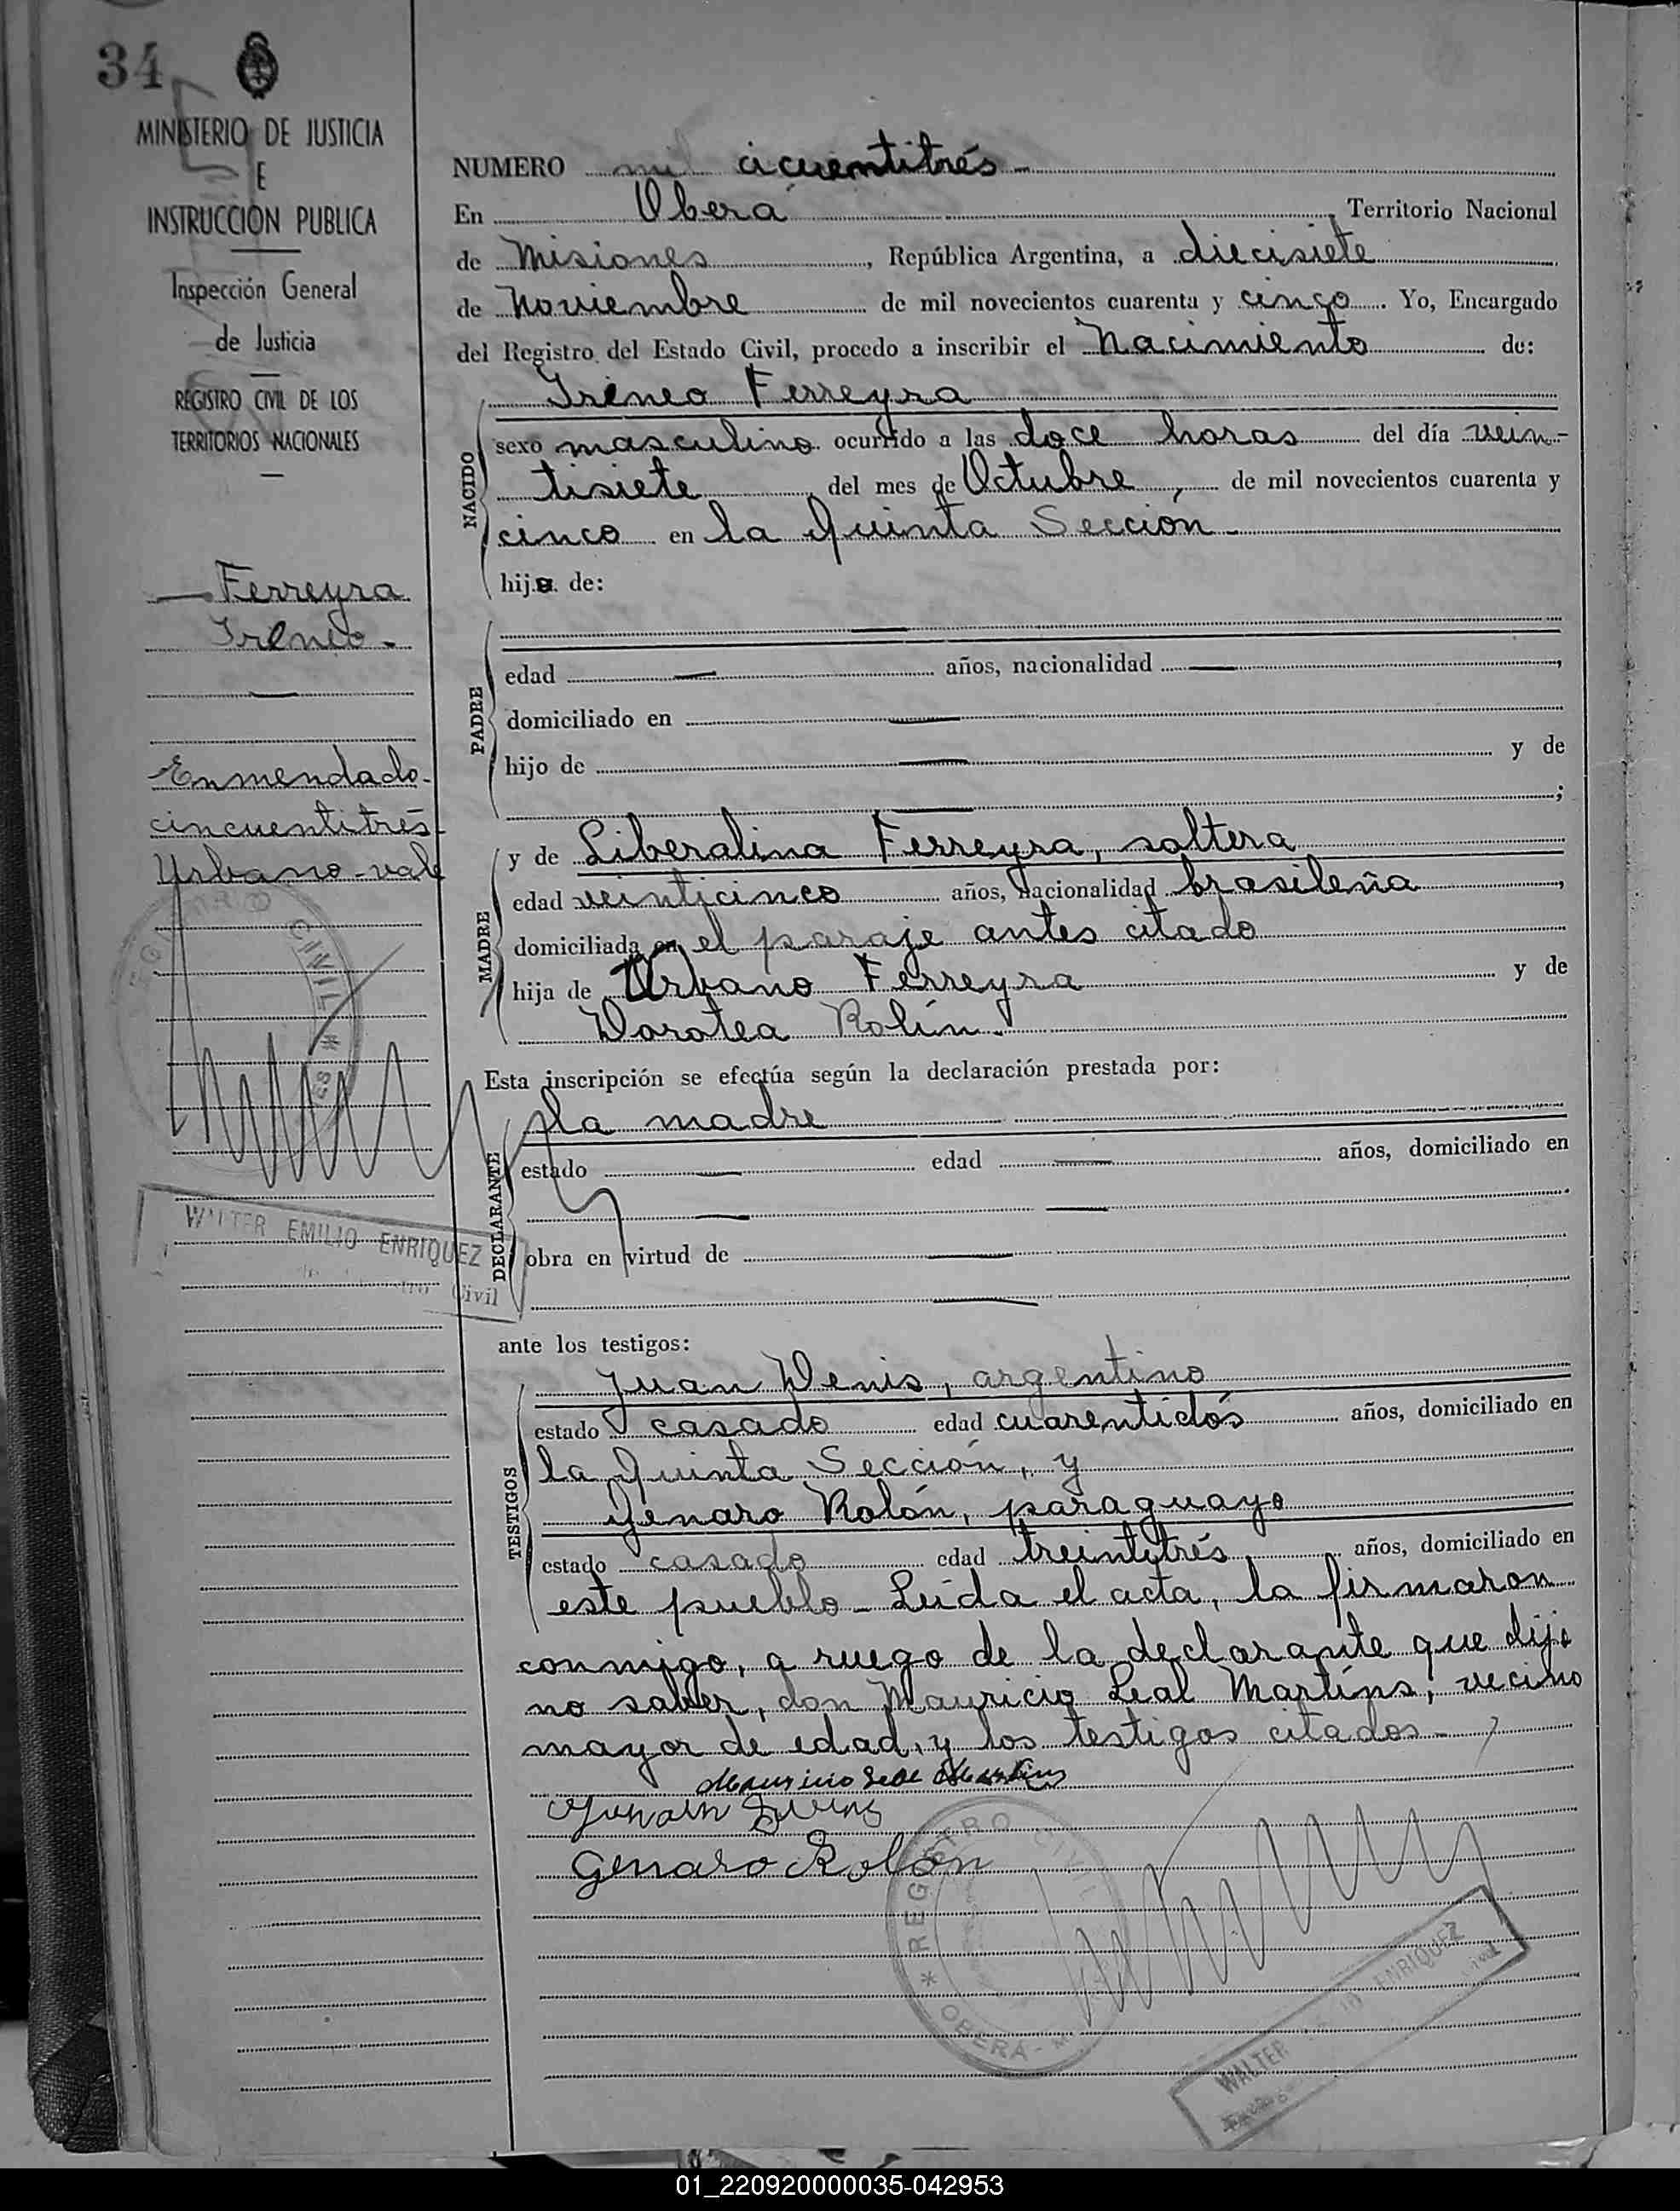 34
MINISTERIO DE JUSTICIA
E
INSTRUCCION PUBLICA
Inspección General
de Justicia
REGISTRO CIVIL DE LOS
TERRITORIOS NACIONALES
Ferreyra
Ireneo.
Enmendado-
cincuentitrés-
Urbano-vale
CIVIL *
WALTER EMILIO ENRIQUEZ
Civil
NUMERO mil cicuentitrés-
En Oberá, Territorio Nacional
de Misiones, República Argentina, a diecisiete
de Noviembre de mil novecientos cuarenta y cinco. Yo, Encargado
del Registro del Estado Civil, procedo a inscribir el Nacimiento de:
NACIDO
Ireneo Ferreyra
sexo masculino ocurrido a las doce horas del día vein-
tisiete, del mes de Octubre, de mil novecientos cuarenta y
cinco en la Quinta Sección-
hijo de:
PADRE
edad — años, nacionalidad —,
domiciliado en —
hijo de — y de
— ;
MADRE
y de Liberalina Ferreyra, soltera
edad veinticinco años, nacionalidad brasileña,
domiciliada en el paraje antes citado
hija de Urbano Ferreyra y de
Dorotea Rolón.
Esta inscripción se efectúa según la declaración prestada por:
DECLARANTE
la madre
estado — edad — años, domiciliado en
— —
obra en virtud de —
—
ante los testigos:
TESTIGOS
Juan Denis, argentino
estado casado edad cuarentidós años, domiciliado en
la Quinta Sección, y
Genaro Rolón, paraguayo
estado casado edad treintitrés, años, domiciliado en
este pueblo- Leída el acta, la firmaron
conmigo, a ruego de la declarante que dijo
no saber, don Mauricio Leal Martins, vecino
mayor de edad, y los testigos citados-
Mauricio Leal Martins
Genaro Rolón
* REGISTRO CIVIL
OBERA - M
WALTER ENRIQUEZ
01_220920000035-042953